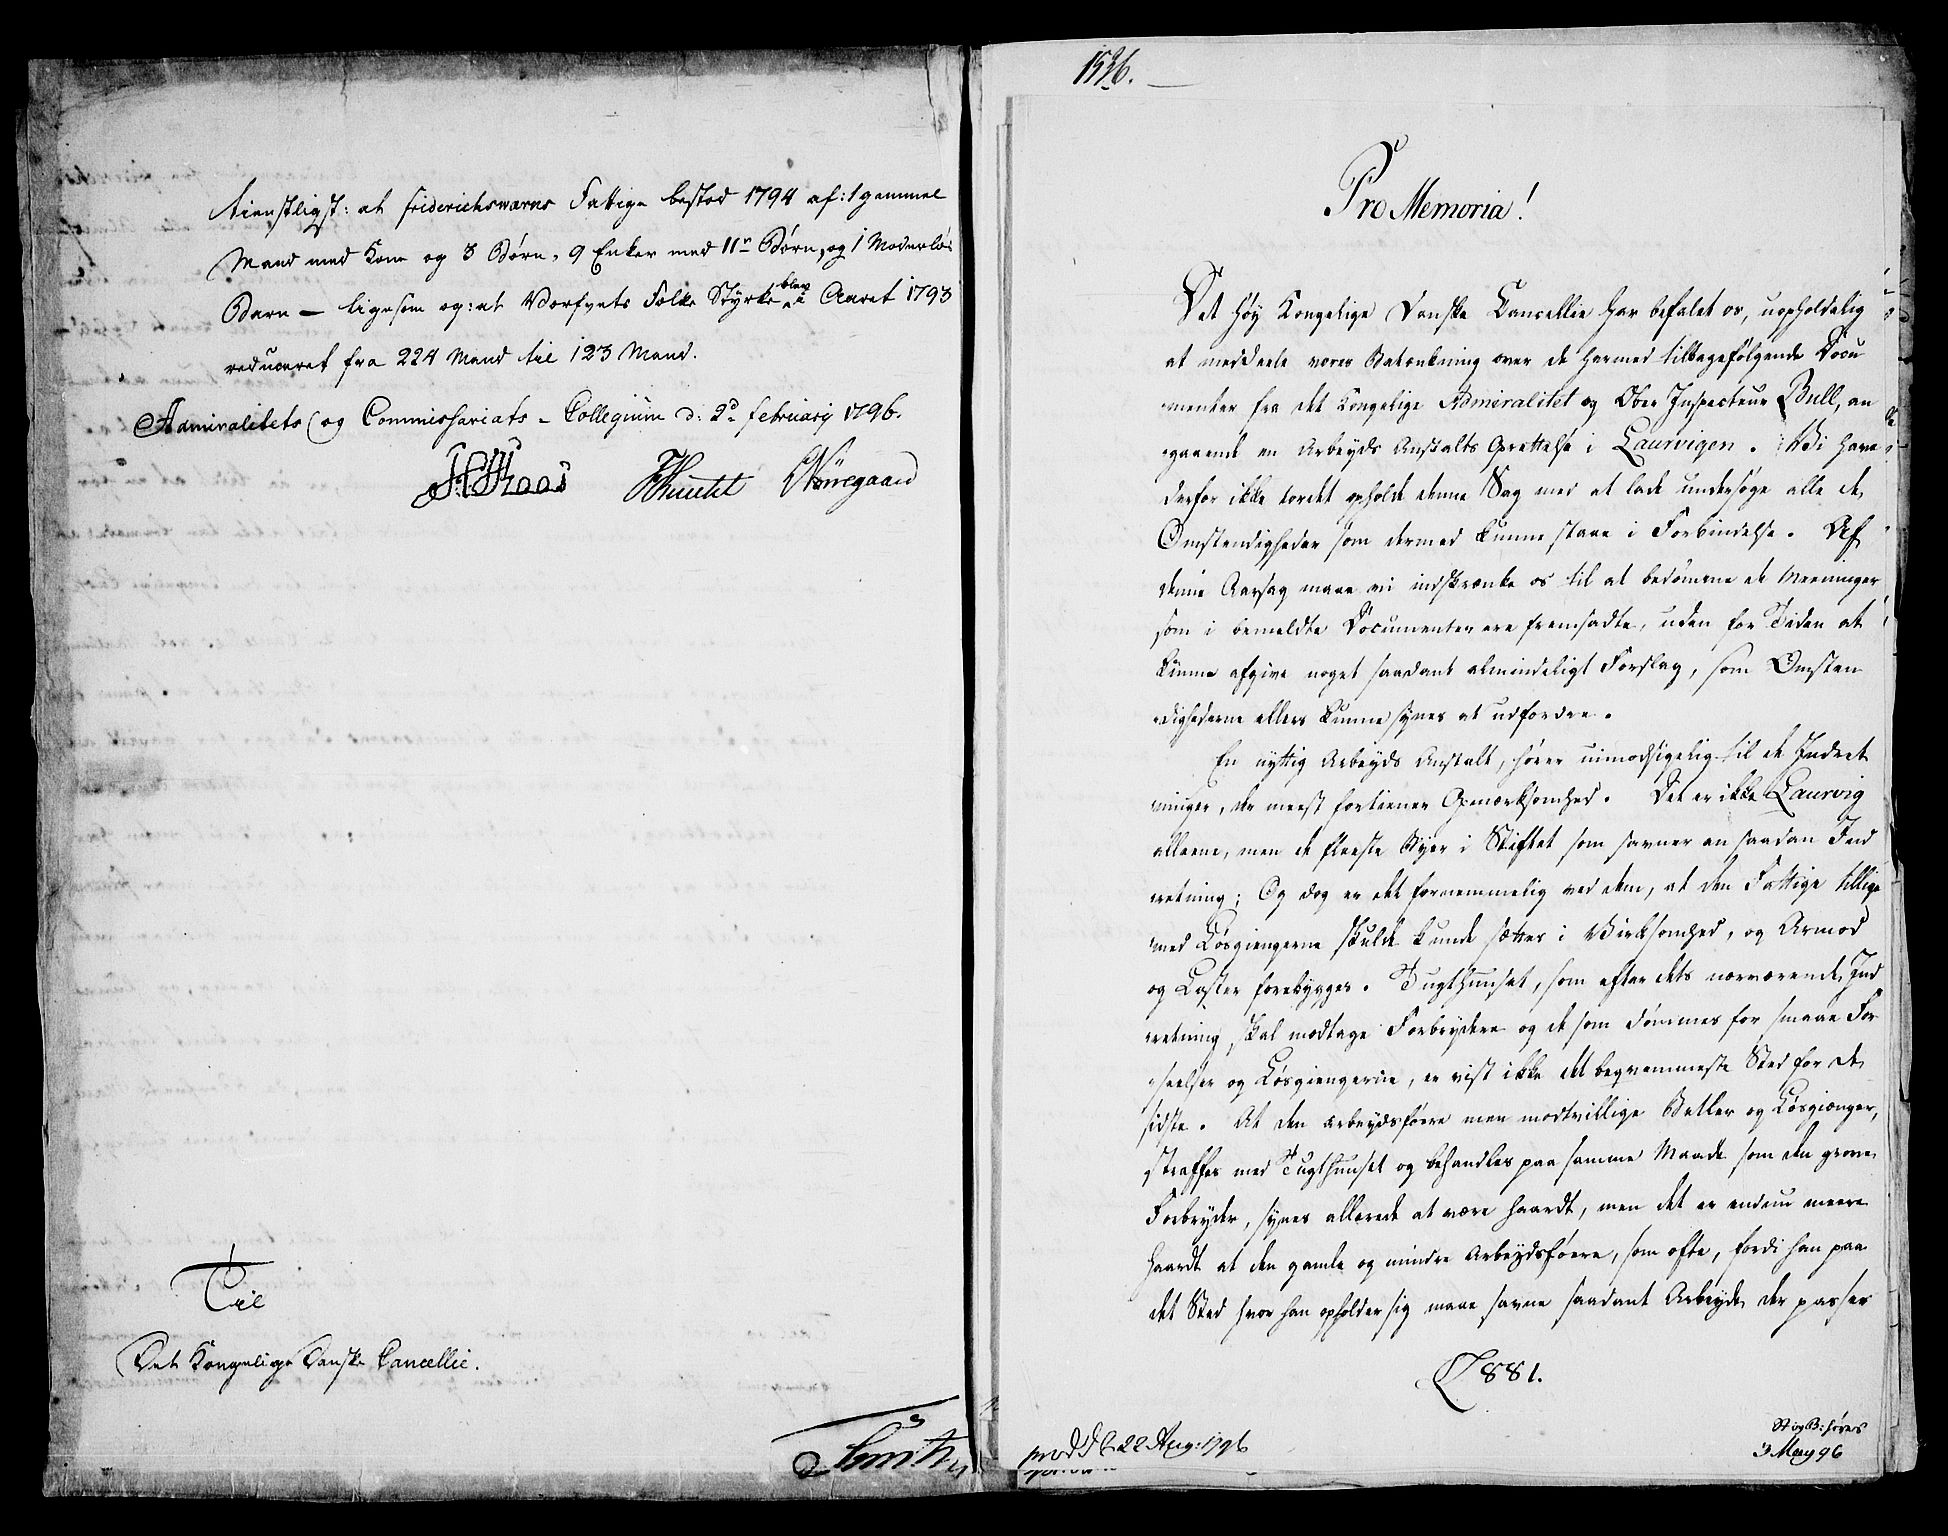 tienstligst: at Friderichswærns Fattige bestod 1794 af: 1 gammel
Mand med Kone og 3 Børn, 9 Enker med 11 Børn, og 1 Moderløs
Barn — ligesom og: at Værfvets Folke Styrke blev i Aaret 1793
reduceret fra 224 Mand til 123 Mand.
Admiralitets og Commissariats-Collegium d: 2d februarij 1796.
Kaas Knudt Nörregaard
Til
Det Kongelige Danske Cancellie.
Smith
1536.
Pro Memoria!
Det høy Kongelige Danske Cancellie har befalet os, uopholdelig
at meddeele vores Betænkning over de hermed tilbagefølgende Docu
menter fra det Kongelige Admiralitet og Ober Inspecteur Bull, an
gaaende en Arbeyds Anstalts Oprettelse i Laurvigen. Vi have
derfor ikke tordet opholde denne Sag med at lade undersøge alle de
Omstendigheder som dermed kunne staae i Forbindelse. Af
denne Aarsag maae vi indskrænke os til at bedømme de Meeninger
som i bemeldte Documenter ere fremsadte, uden for Tiden at
kunne afgive noget saadant almindeligt Forslag, som Omsten
dighederne ellers kunne synes at udfordre.
En nyttig Arbeyds Anstalt, hører uimodsigelig til de Indret
ninger, der meest fortiener Opmærksomhed. Det er ikke Laurvig
alleene, men de fleeste Byer i Stiftet som savner en saadan Ind
retning; Og dog er det fornemmelig ved dem, at den Fattige tillige
med Løsgiengerne skulde kunde sættes i Virksomhed, og Armod
og Laster forebygges. Tugthuuset, som efter dets nærværende Ind
retning, skal modtage Forbrydere og de som dømmes for smaae For
seelser og Løsgiengerne, er vist ikke det beqvemmeste Sted for de
sidste. At den arbeydsføre men modtvillige Betler og Løsgiænger,
straffes med Tugthuuset og behandles paa samme Maade som den grove
Forbryder, synes allerede at være haardt, men det er endnu meere
haardt at den gamle og mindre Arbeydsføere, som ofte, fordi han paa
det Sted hvor han opholder sig maae savne saadant Arbeyde der passer
C 881.
prod d 22 Aug: 1796
St og B: høres
3 May 96